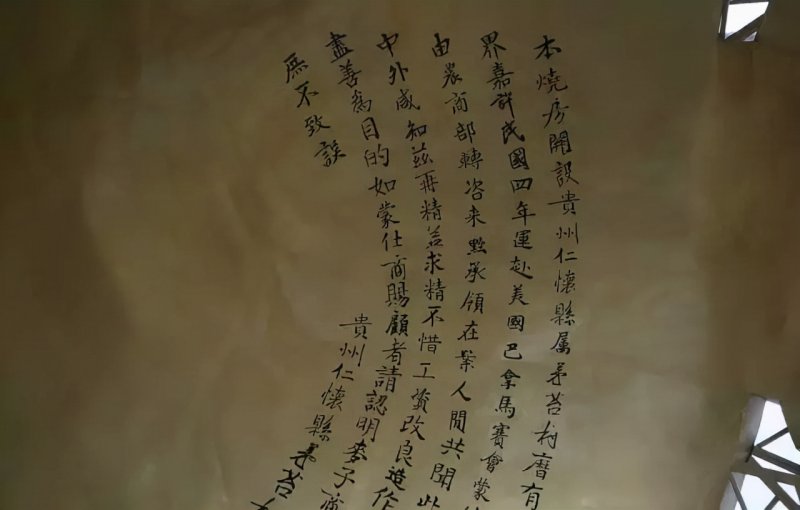 本燒房開設貴州仁懷縣属茅苔村曆有
界嘉許民國四年運赴美國巴拿馬賽會蒙
由農商部轉咨来黔承領在案人間共聞此
中外咸知茲再精益求精不惜工資改良造作
盡善為目的如蒙仕商賜顧者請認明麥子商
庶不致誤
貴州仁懷縣茅苔